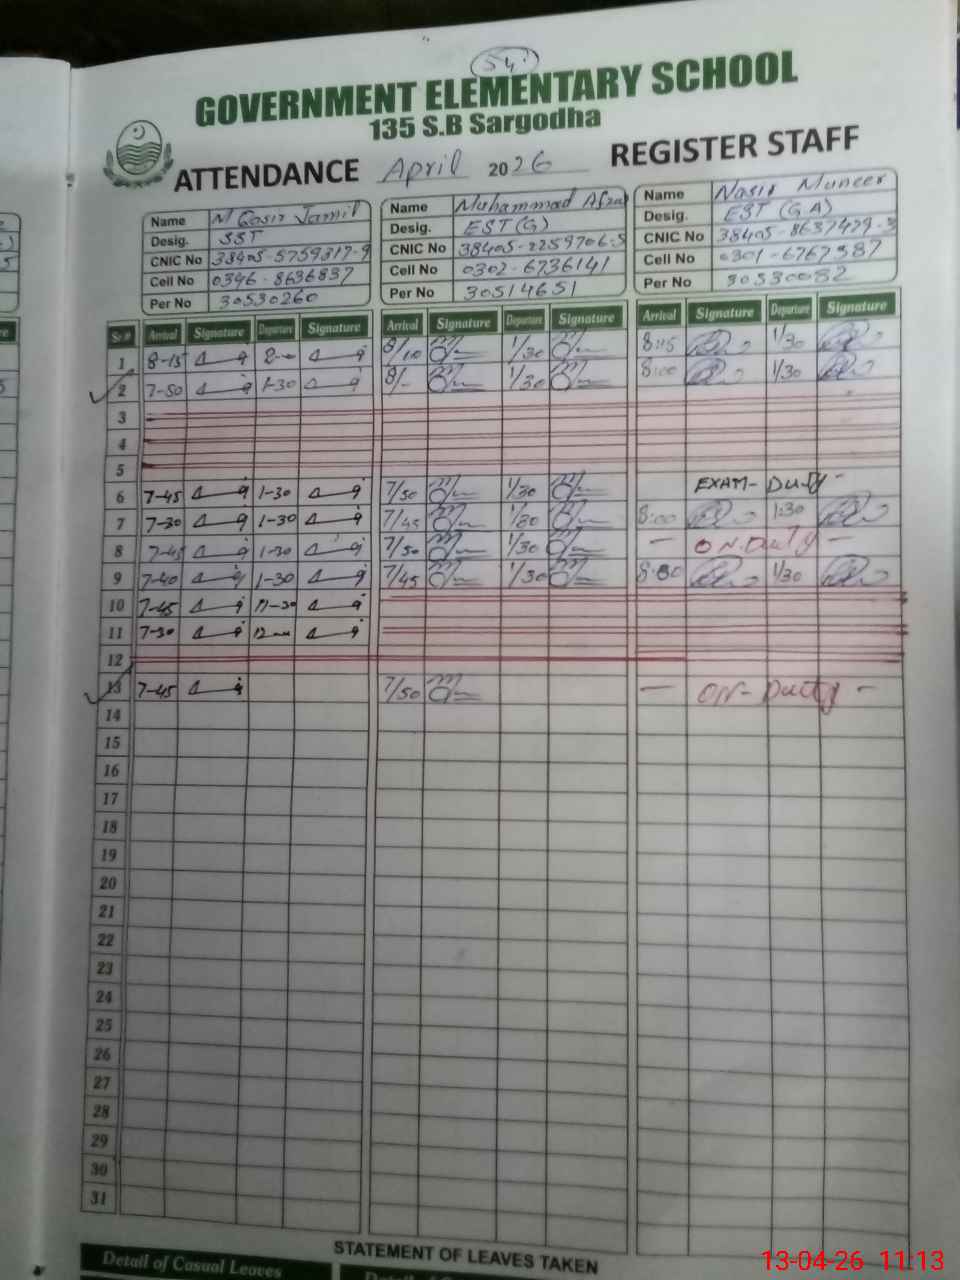 54
GOVERNMENT ELEMENTARY SCHOOL
135 S.B Sargodha
ATTENDANCE April 2026 REGISTER STAFF
Name M Qasir Jamil
Desig. SST
CNIC No 38405-5759317-9
Cell No 0346-8636837
Per No 30530260
Name Muhammad Afzal
Desig. EST (G)
CNIC No 38405-2259706-5
Cell No 0302-6736141
Per No 30514651
Name Nasir Muneer
Desig. EST (GA)
CNIC No 38405-8637429-3
Cell No 0301-6767387
Per No 30530082
Sr.# Arrival Signature Departure Signature Arrival Signature Departure Signature Arrival Signature Departure Signature
1 8-15 2-00 8/10 1/30 8:15 1/30
2 7-50 1-30 8/- 1/30 8:00 1/30
3
4
5
6 7-45 1-30 7/50 1/30 EXAM-Duty-
7 7-30 1-30 7/45 1/30 8:00 1:30
8 7-45 1-30 7/50 1/30 - ON.Duty -
9 7-40 1-30 7/45 1/30 8:00 1/30
10 7-45 11-30
11 7-30 12-00
12
13 7-45 7/50 - ON-Duty -
14
15
16
17
18
19
20
21
22
23
24
25
26
27
28
29
30
31
STATEMENT OF LEAVES TAKEN
Detail of Casual Leaves
13-04-26 11:13